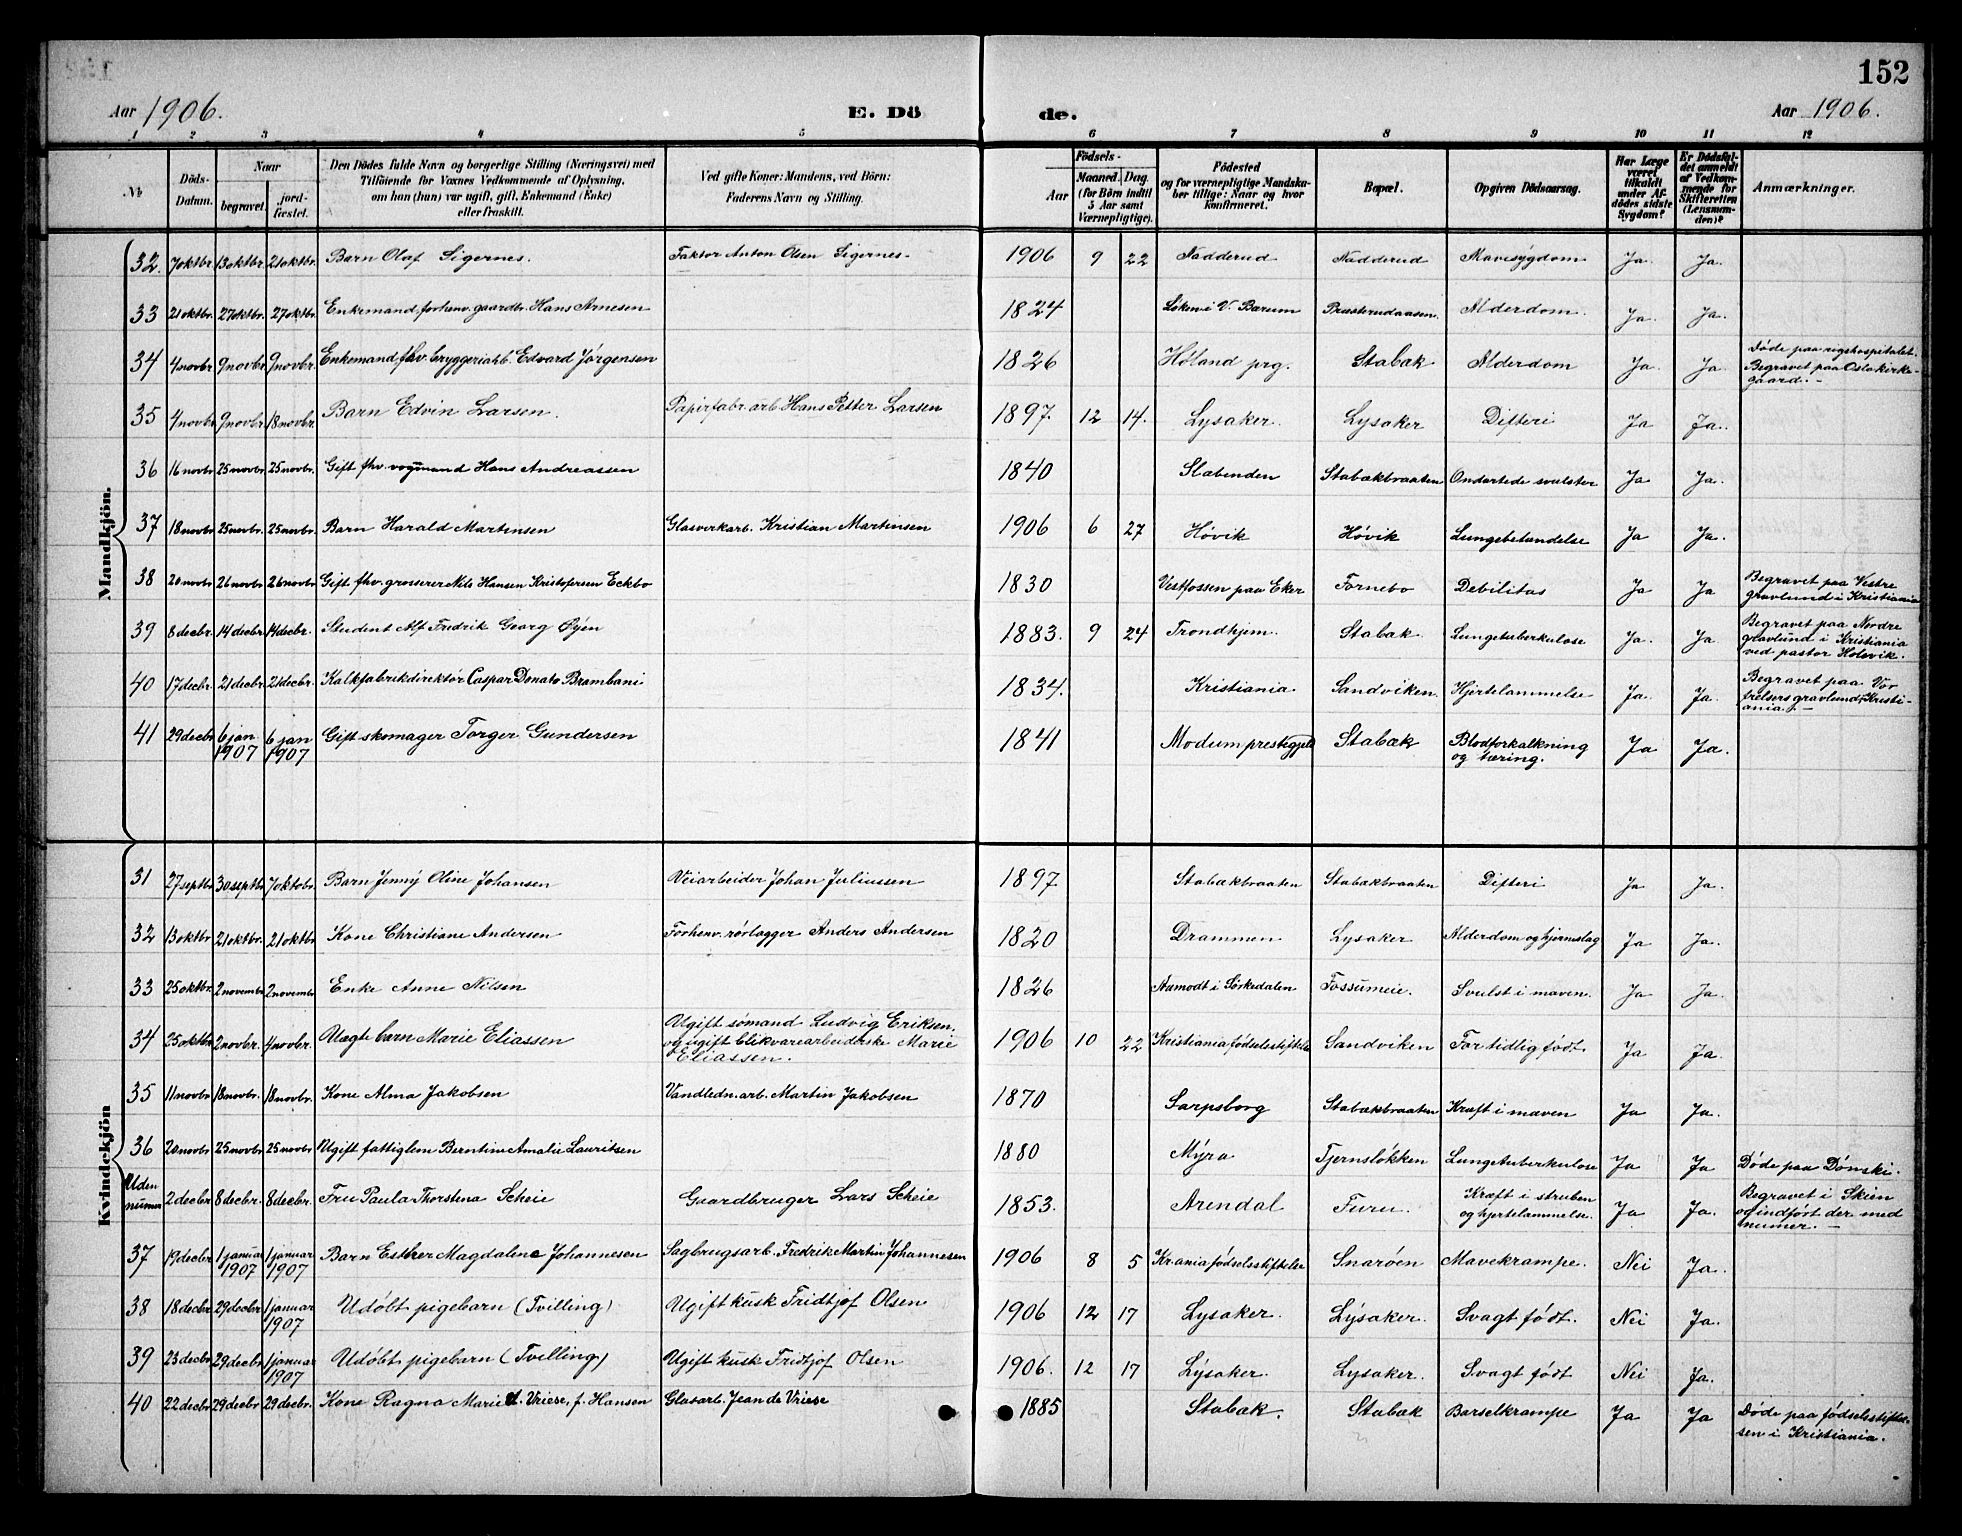 152
Aar 1906.
E. Dö
de.
Aar 1906.
1 2 3 4 5 6 7 8 9 10 11 12
No
Døds-Datum.
Naar
begravet.
jordfæstet.
Den Dødes fulde Navn og borgerlige Stilling (Næringsvei) med
Tilføiende for Voxnes Vedkommende af Oplysning,
om han (hun) var ugift, gift, Enkemand (Enke)
eller fraskilt.
Ved gifte Koner: Mandens, ved Børn:
Faderens Navn og Stilling.
Fødsels-
Aar
Maaned. Dag.
(for Børn indtil
5 Aar samt
Værnepligtige).
Födested
og for værnepligtige Mandskaber tillige: Naar og hvor
konfirmeret.
Bopæl.
Opgiven Dödsaarsag.
Har Læge
været
tilkaldt
under Afdödes sidste
Sygdom?
Er Dödsfaldet anmeldt
af Vedkommende for
Skifteretten
(Lensmanden)?
Anmærkninger.
Mandkjön.
32. 7 oktbr. 13 oktbr. 21 oktbr. Barn Olaf Sigernes. Faktor Anton Olsen Sigernes. 1906 9 22 Nadderud Nadderud Mavesygdom Ja. Ja.
33 21 oktbr. 27 oktbr. 27 oktbr. Enkemand, forhenv. gaardbr. Hans Arnesen 1824 Løken i V. Bærum Præsterudaasen. Alderdom. Ja Ja.
34 4 novbr 9 novbr. 9 novbr. Enkemand, fhv. bryggeriarb. Edvard Jørgensen 1826 Høland prg. Stabæk Alderdom Ja. Ja Døde paa rigshospitalet.
Begravet paa Oslo kirkegaard. -
35 4 novbr 9 novbr. 18 novbr. Barn Edvin Larsen. Papirfabr. arb. Hans Petter Larsen 1897. 12 14. Lysaker Lysaker Difteri Ja Ja.
36 16 novbr 25 novbr. 25 novbr. Gift fhv. vogmand Hans Andreassen 1840 Slæbenden Stabækbraaten Ondartede svulster Ja Ja.
37 18 novbr. 25 novbr. 25 novbr. Barn Harald Martinsen Glasverkarb. Kristian Martinsen 1906 6 27 Høvik Høvik Lungebetændelse Ja Ja.
38 20 novbr. 26 novbr. 26 novbr. Gift fhv. grosserer Nils Hansen Kristofersen Eckbo 1830 Vestfossen paa Eker Fornebo Debilitas Ja Ja Begravet paa Vestre
gravlund i Kristiania
39 8 decbr. 14 decbr. 14 decbr. Student Alf Fredrik Georg Øyen 1883. 9 24 Trondhjem. Stabæk. Lungetuberkulose Ja. Ja. Begravet paa Nordre
gravlund i Kristiania
ved pastor Holsvik.
40 17 decbr. 21 decbr. 21 decbr. Kalkfabrikdirektør Caspar Donato Brambani 1834. Kristiania Sandviken. Hjertelammelse Ja. Ja. Begravet paa Vor
frelsers gravlund, Kristiania. -
41 29 decbr 6 jan 1907 6 jan 1907 Gift skomager Torger Gundersen 1841 Modum prestegjeld Stabæk Blodforkalkning
og tæring. Ja Ja.
Kvindekjön
31 27 septbr 30 septbr 7 oktobr. Barn Jenny Oline Johansen Veiarbeider Johan Juliussen 1897 Stabækbraaten Stabækbraaten Difteri Ja Ja.
32 13 oktbr 21 oktbr. 21 oktbr. Kone Christiane Andersen Forhenv. rørlægger Anders Andersen 1820 Drammen Lysaker Alderdom og hjerneslag Ja Ja.
33 25 oktbr. 2 novembr 2 novembr Enke Anne Nilsen 1826 Aamodt i Sørkedalen Fossumeie. Svulst i maven. Ja Ja.
34 25 oktbr. 2 novbr. 4 novbr. Uægte barn Marie Eliassen Ugift sømand Ludvig Eriksen.
og ugift blikvarearbeiderske Marie
Eliassen. 1906 10 22 Kristiania fødselsstiftelse Sandviken For tidlig født. Ja Ja.
35 11 novbr 18 novbr. 18 novbr. Kone Alma Jakobsen Vandledn. arb. Martin Jakobsen 1870 Sarpsborg Stabækbraaten Kræft i maven Ja Ja.
36 20 novbr 25 novbr 25 novbr Ugift fattiglem Berntine Amalie Lauritsen 1880 Myra Tjernsløkken Lungetuberkulose Ja Ja Døde paa Dønski.
Uden numer 2 decbr 8 decbr. 8 decbr. Fru Paula Thorstena Scheie Gaardbruger Lars Scheie 1853. Arendal Furu. Kræft i struben
og hjertelammelse. Ja Ja. Begravet i Skien
og indført der med
numer. -
37 19 decbr 1 januar 1907 1 januar 1907 Barn Esther Magdalene Johannesen Sagbrugsarb. Fredrik Martin Johannesen 1906 8 5 Kr.ania fødselsstiftelse Snarøen Mavekrampe. Nei Ja.
38 18 decbr 29 decbr. 1 januar 1907 Udøbt pigebarn (Tvilling) Ugift kusk Fridtjof Olsen 1906 12 17 Lysaker. Lysaker. Svagt født. Nei Ja.
39 23 decbr 29 decbr. 1 januar 1907 Udøbt pigebarn (Tvilling) Ugift kusk Fridtjof Olsen 1906. 12 17 Lysaker. Lysaker. Svagt født Nei Ja.
40 22 decbr 29 decbr 29 decbr. Kone Ragna Marie d. Vriese, f. Hansen Glasarb. Jean de Vriese 1885 Stabæk. Stabæk Barselkrampe Ja Ja Døde paa fødselsstiftelsen i Kristiania.